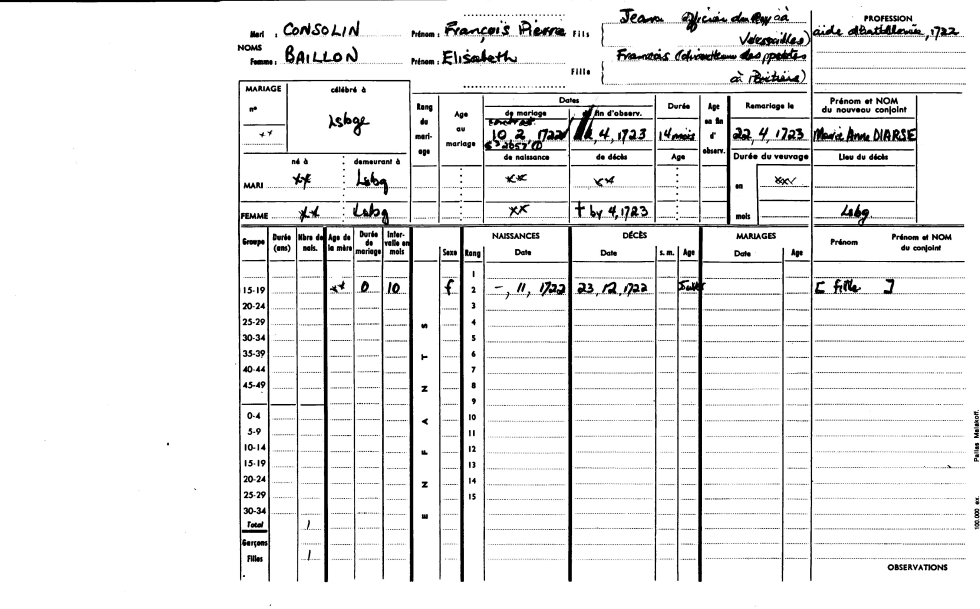 Mari : CONSOLIN Prénom : François Pierre Fils { Jean officier du Roy à Versailles)
PROFESSION
aide d'artillerie, 1722
NOMS
Femme : BAILLON Prénom : Elisabeth Fille { François (directeur des postes à Poitiers)
MARIAGE célébré à
nº
xx Lsbge
Rang du mariage
Age au mariage
Dates
de mariage fin d'observ.
contrat
10 2, 1722 4, 1723
de naissance de décès
Durée
14 mois
Age
Age en fin d'observ.
Remariage le
22, 4, 1723
Durée du veuvage
en xxx
mois
Prénom et NOM du nouveau conjoint
Marie Anne DIARSE
Lieu du décès
né à demeurant à
MARI xx Lsbg xx xx
FEMME xx Lsbg xx + by 4, 1723 Lsbg
Groupe Durée (ans) Nbre de nais. Age de la mère Durée de mariage Intervalle en mois
ENFANTS
Sexe Rang
NAISSANCES Date
DÉCÈS Date s. m. Age
MARIAGES Date Age
Prénom Prénom et NOM du conjoint
1
15-19 xx 0 10 f 2 -, 11, 1722 23, 12, 1722 [ fille ]
20-24 3
25-29 4
30-34 5
35-39 6
40-44 7
45-49 8
9
0-4 10
5-9 11
10-14 12
15-19 13
20-24 14
25-29 15
30-34
Total 1
Garçons
Filles 1
OBSERVATIONS
100.000 ex. Pallas Malakoff.